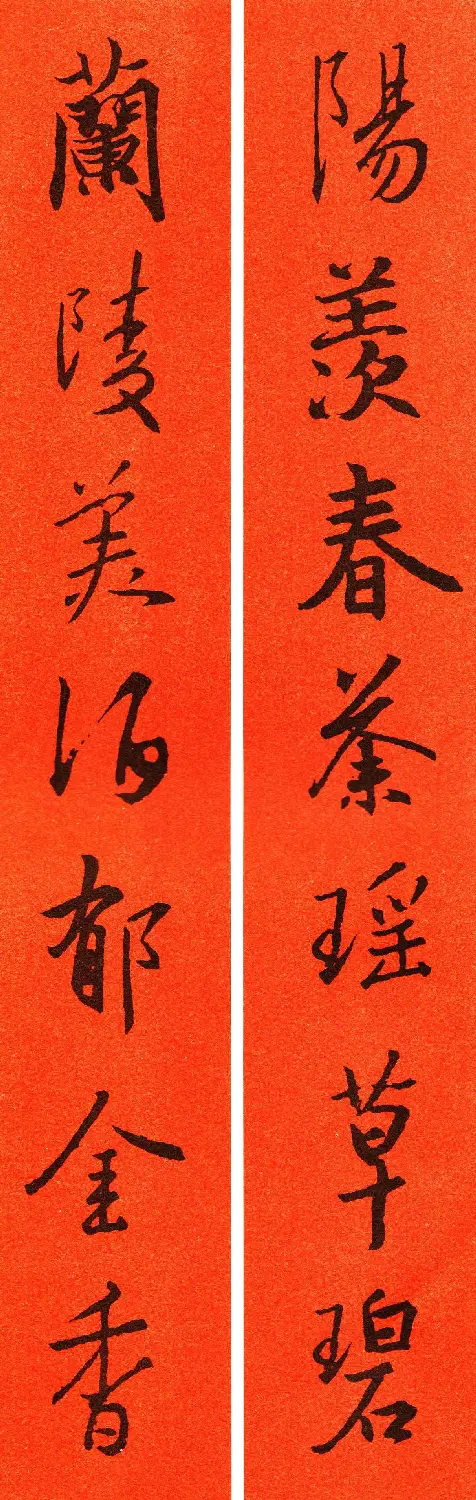 陽羨春茶瑤草碧
蘭陵美酒郁金香